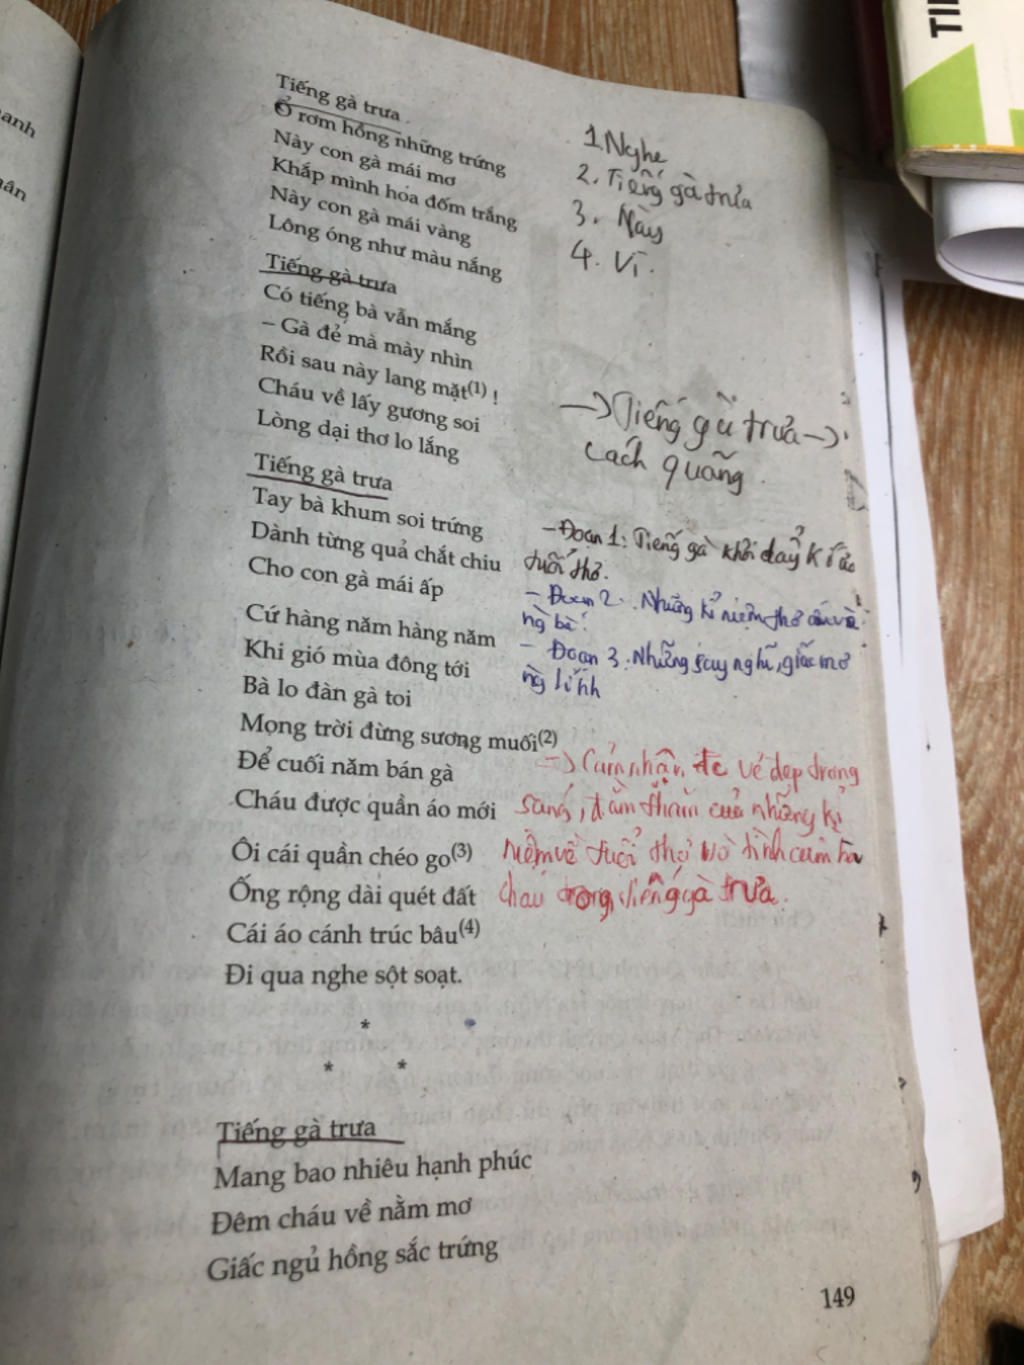 anh
TII
Tiếng gà trưa
Ổ rơm hồng những trứng
Này con gà mái mơ
Khắp mình hoa đốm trắng
Này con gà mái vàng
Lông óng như màu nắng
Tiếng gà trưa
Có tiếng bà vẫn mắng
– Gà đẻ mà mày nhìn
Rồi sau này lang mặt(1) !
Cháu về lấy gương soi
Lòng dại thơ lo lắng
Tiếng gà trưa
Tay bà khum soi trứng
Dành từng quả chắt chiu
Cho con gà mái ấp
Cứ hàng năm hàng năm
Khi gió mùa đông tới
Bà lo đàn gà toi
Mong trời đừng sương muối(2)
Để cuối năm bán gà
Cháu được quần áo mới
Ôi cái quần chéo go(3)
Ống rộng dài quét đất
Cái áo cánh trúc bâu(4)
Đi qua nghe sột soạt.
*
* *
Tiếng gà trưa
Mang bao nhiêu hạnh phúc
Đêm cháu về nằm mơ
Giấc ngủ hồng sắc trứng
1. Nghe
2. Tiếng gà trưa
3. Này
4. Vì.
→ Tiếng gà trưa →
cách quãng.
- Đoạn 1: Tiếng gà khơi dạy kí ức
tuổi thơ.
- Đoạn 2: Những kỉ niệm thơ ấu về
ng bà.
- Đoạn 3: Những suy nghĩ, giấc mơ
ng lính
→ Cảm nhận đc vẻ đẹp trong
sáng, đằm thắm của những kỉ
niệm về tuổi thơ và tình cảm bà
cháu trong tiếng gà trưa.
149